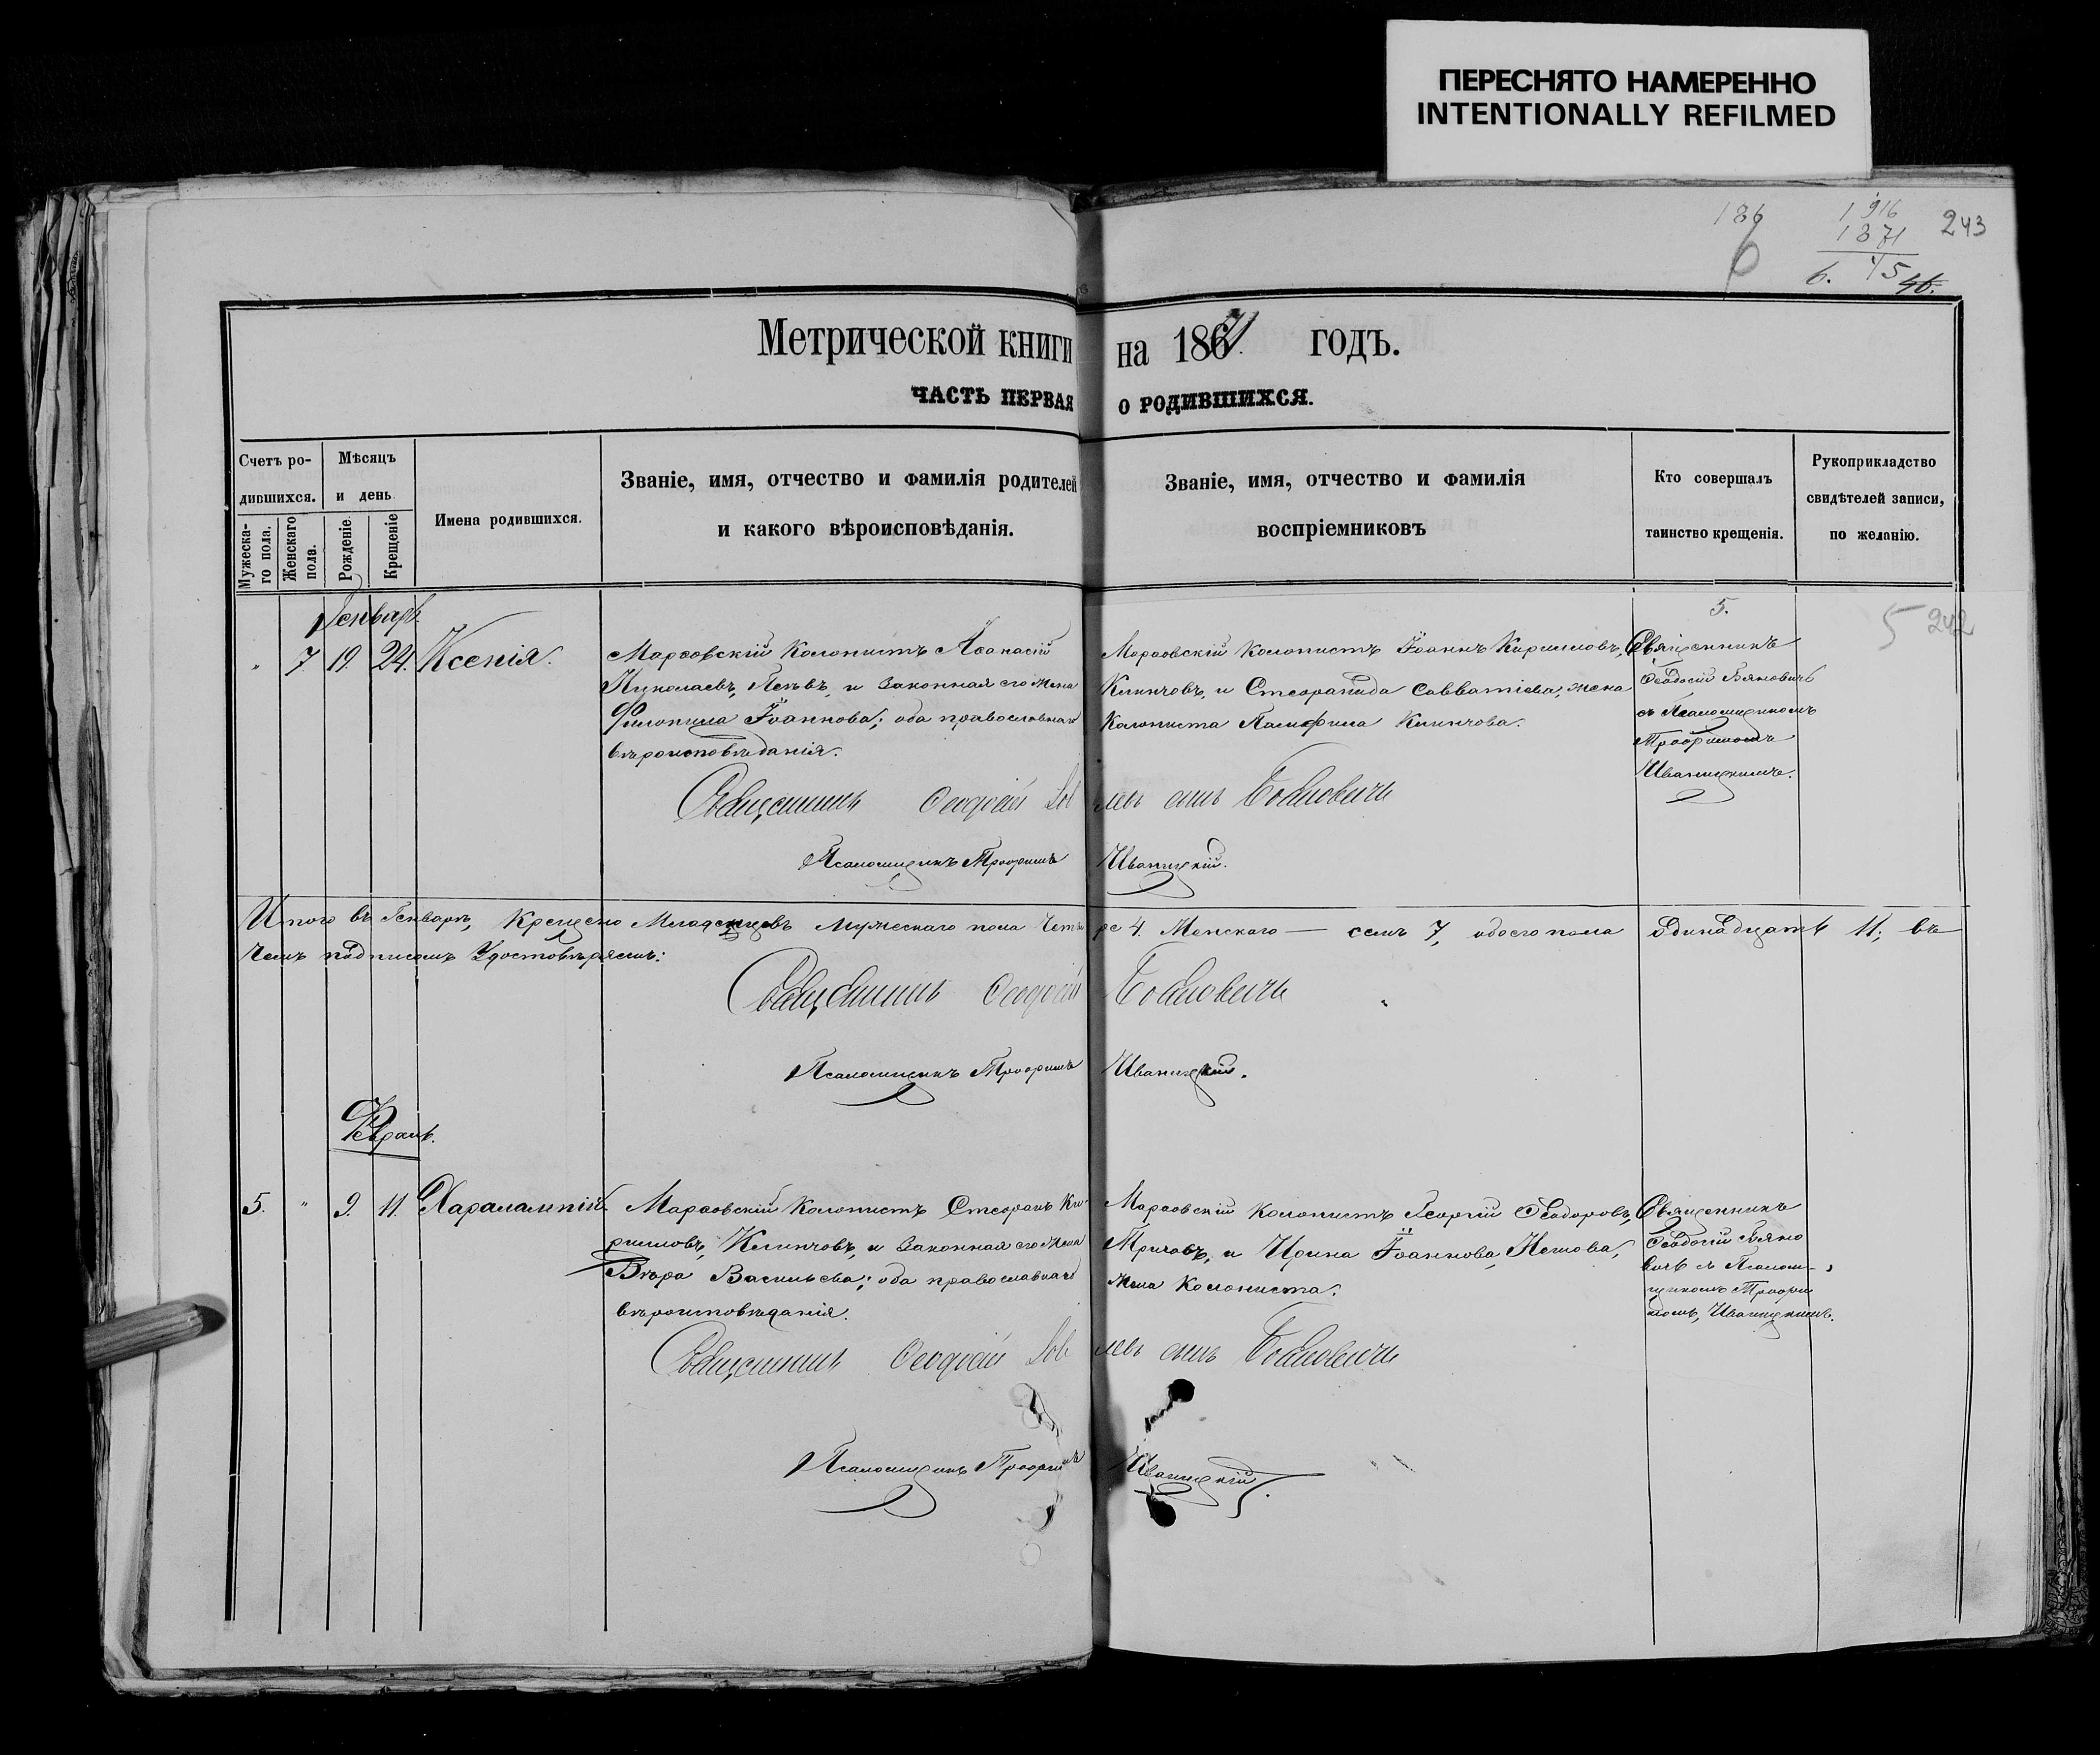 ПЕРЕСНЯТО НАМЕРЕННО
INTENTIONALLY REFILMED
186
6
1916
1871
6. 45
46.
243
Метрической книги на 1871 годъ.
ЧАСТЬ ПЕРВАЯ О РОДИВШИХСЯ.
Счетъ ро-
дившихся.
Мужеска-
го пола.
Женскаго
пола.
Мѣсяцъ
и день
Рожденіе.
Крещеніе
Имена родившихся.
Званіе, имя, отчество и фамилія родителей
и какого вѣроисповѣданія.
Званіе, имя, отчество и фамилія
воспріемниковъ
Кто совершалъ
таинство крещенія.
Рукоприкладство
свидѣтелей записи,
по желанію.
Генварь.
" 7. 19. 24. Ксенія.
Колонистъ Аѳанасій
Николаевъ, и законная его жена
Іоаннова; оба православнаго
вѣроисповѣданія.
Колонистъ Іоаннъ Кирилловъ,
Клинчовъ, и Стефанида Савватіева, жена
Колониста Памфила Клинчова.
5.
Священникъ
Ѳеодосій Бяновичъ
съ Псаломщикомъ
Трофимомъ
Иваницкимъ.
5 242
Священникъ Ѳеодосій сынъ Бояновичъ
Псаломщикъ Трофимъ Иваницкій.
Итого въ Генварѣ, Крещено Младенцевъ Мужескаго пола Четыре 4. Женскаго — семь 7, обоего пола одинадцать 11; въ
чемъ подписомъ Удостовѣряемъ:
Священникъ Ѳеодосій Бояновичъ
Псаломщикъ Трофимъ Иваницкій.
Февраль.
5. " 9. 11. Харалампій.
Колонистъ Стефанъ Ки-
рилловъ, Клинчовъ, и законная его жена
Вѣра Васильева; оба православнаго
вѣроисповѣданія.
Колонистъ Георгій Ѳеодоровъ,
и Ирина Іоаннова,
жена Колониста.
Священникъ
Ѳеодосій Бяно
вичъ съ Псалом-
щикомъ Трофи
момъ, Иваницкимъ.
Священникъ Ѳеодосій сынъ Бояновичъ
Псаломщикъ Трофимъ Иваницкій.